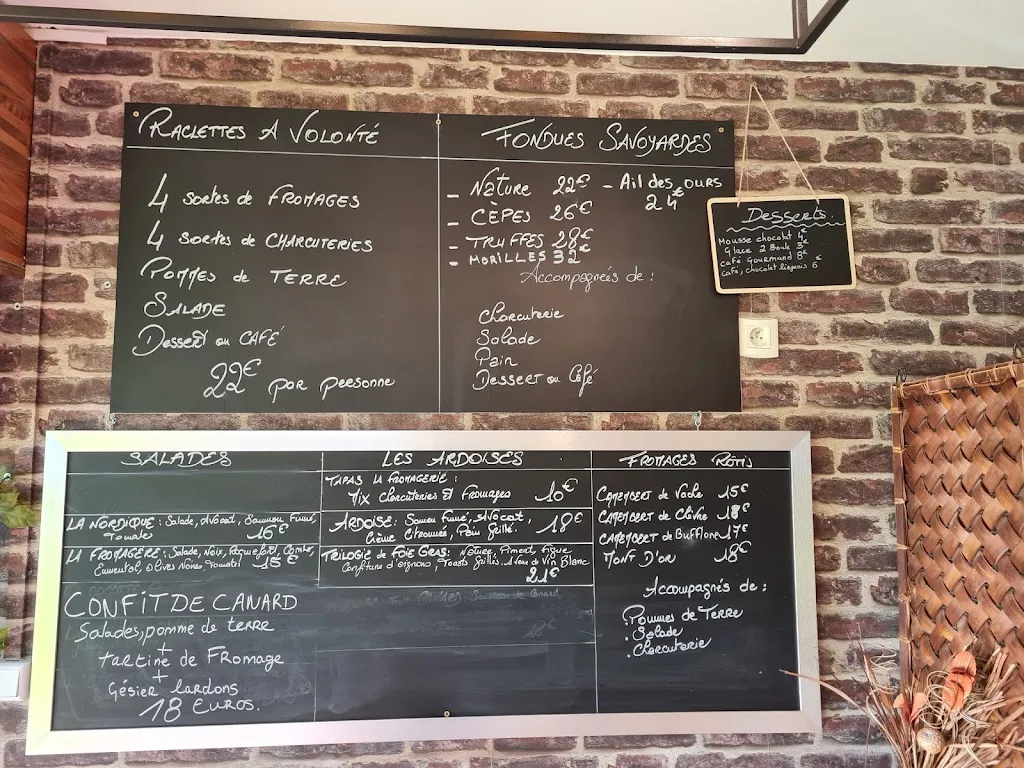 RACLETTES A VOLONTÉ
4 sortes de FROMAGES
4 sortes de CHARCUTERIES
POMMES de TERRE
SALADE
Dessert ou CAFÉ
22€ par personne
FONDUES SAVOYARDES
- Nature 22€
- CÈPES 26€
- TRUFFES 28€
- MORILLES 32€
- Ail des ours
24€
Accompagnés de :
Charcuterie
Salade
Pain
Dessert ou Café
Desserts
Mousse chocolat 4€
Glace 2 Boule 3€
café Gourmand 8€
café, chocolat liégeois 6€
SALADES
LA NORDIQUE : Salade, Avocat, Saumon Fumé,
Tomate 16€
LA FROMAGÈRE : Salade, Noix, Roquefort, Comté,
Emmental, Olives Noires, Tomate 15€
CONFIT DE CANARD
Salades, pomme de terre
+
tartine de Fromage
+
Gésier lardons
18 EUROS.
LES ARDOISES
TAPAS LA FROMAGERIE :
Mix Charcuteries et Fromages 10€
ARDOISE : Saumon Fumé, Avocat,
Crème Citronnée, Pain Grillé. 18€
TRILOGIE de FOIE GRAS : Nature, Piment, Figue
Confiture d'oignons, Toasts Grillés. Verre de Vin Blanc
21€
FROMAGES RÔTIS
CAMEMBERT de Vache 15€
CAMEMBERT de Chèvre 18€
CAMEMBERT de Bufflone 17€
MONT D'OR 18€
Accompagnés de :
. Pommes de Terre
. Salade
. Charcuterie